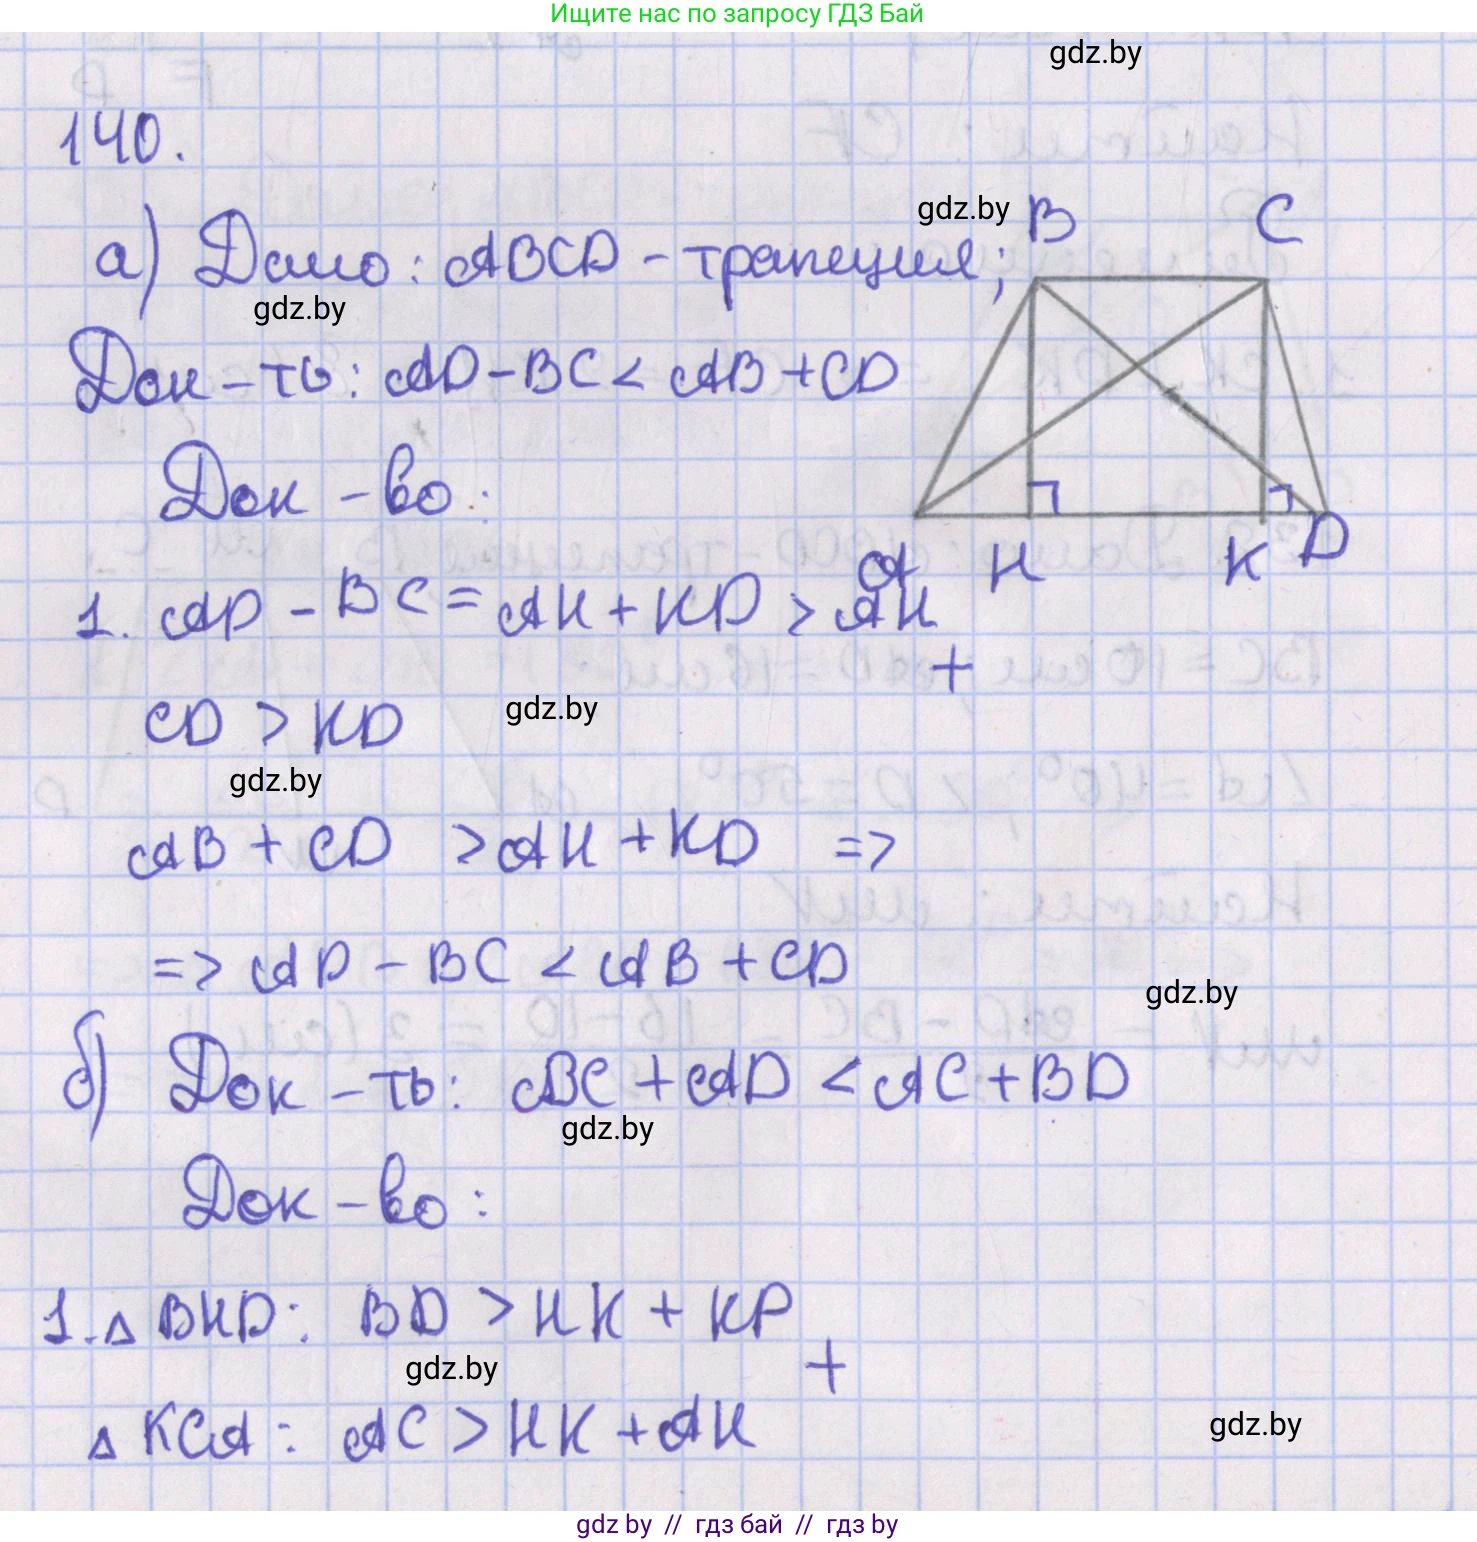 Ищите нас по запросу ГДЗ Бай
gdz.by
140.
gdz.by
B C
а) Дано: ABCD - трапеция;
gdz.by
Док-ть: AD - BC < AB + CD
Док-во:
A H K D
1. AD - BC = AH + KD > AH
+
CD > KD
gdz.by
gdz.by
AB + CD > AH + KD =>
=> AD - BC < AB + CD
gdz.by
б) Док-ть: BC + AD < AC + BD
gdz.by
Док-во:
1. △ BHD: BD > HK + KP
gdz.by
+
△ KCA: AC > HK + AH
gdz.by
gdz by // гдз бай // гдз by